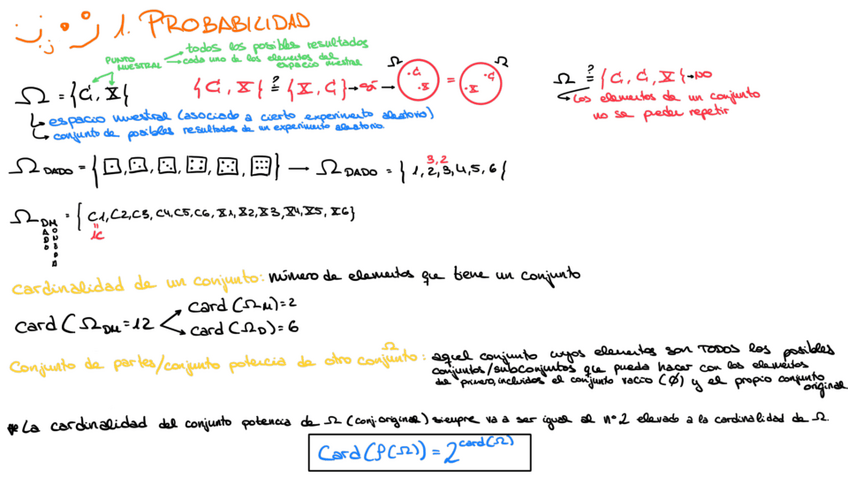 1. PROBABILIDAD
PUNTO MUESTRAL
todos los posibles resultados
cada uno de los elementos del espacio muestral
Ω = {C, X}
{C, X} ≟ {X, C} → sí → Ω ·C ·X = Ω ·C ·X
Ω ≟ {C, C, X} → NO
Los elementos de un conjunto
no se pueden repetir
espacio muestral (asociado a cierto experimento aleatorio)
conjunto de posibles resultados de un experimento aleatorio
Ω DADO = {⚀, ⚁, ⚂, ⚃, ⚄, ⚅} → Ω DADO = {1, 2, 3, 4, 5, 6}
3, 2
Ω DM = {C1, C2, C3, C4, C5, C6, X1, X2, X3, X4, X5, X6}
DADO
=
1C
cardinalidad de un conjunto: número de elementos que tiene un conjunto
card(Ω DM = 12
card(Ω M) = 2
card(Ω D) = 6
Conjunto de partes/conjunto potencia de otro conjunto: aquel conjunto cuyos elementos son TODOS los posibles
Ω
conjuntos/subconjuntos que pueda hacer con los elementos
del primero, incluidos el conjunto vacío (∅) y el propio conjunto
original
* La cardinalidad del conjunto potencia de Ω (conj. original) siempre va a ser igual al nº 2 elevado a la cardinalidad de Ω.
Card(P(Ω)) = 2^card(Ω)